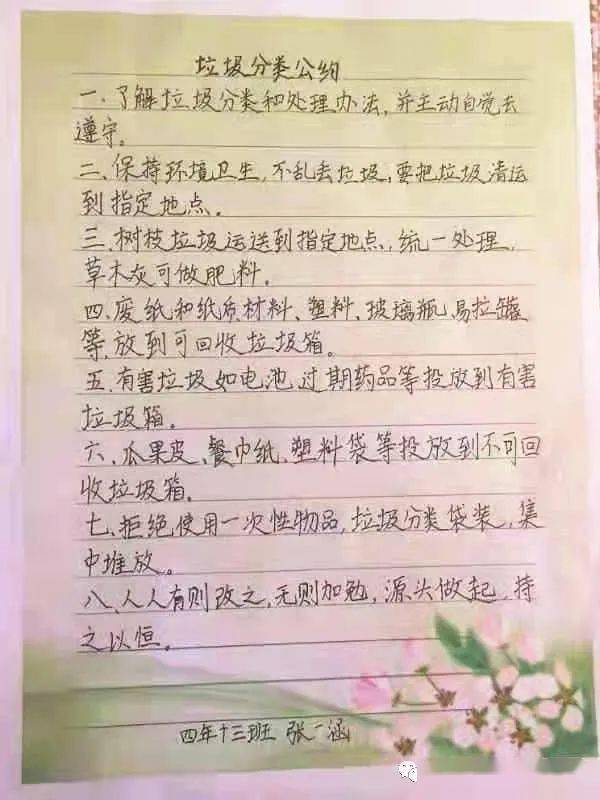 垃圾分类公约
一.了解垃圾分类和处理办法,并主动自觉去
遵守。
二、保持环境卫生,不乱丢垃圾,要把垃圾清运
到指定地点。
三.树枝垃圾运送到指定地点,统一处理,
草木灰可做肥料。
四.废纸和纸质材料、塑料、玻璃瓶、易拉罐
等,放到可回收垃圾箱。
五.有害垃圾如电池,过期药品等投放到有害
垃圾箱。
六、瓜果皮、餐巾纸、塑料袋等投放到不可回
收垃圾箱。
七、拒绝使用一次性物品,垃圾分类袋装,集
中堆放。
八、人人有则改之,无则加勉,源头做起,持
之以恒。
四年十三班 张一涵